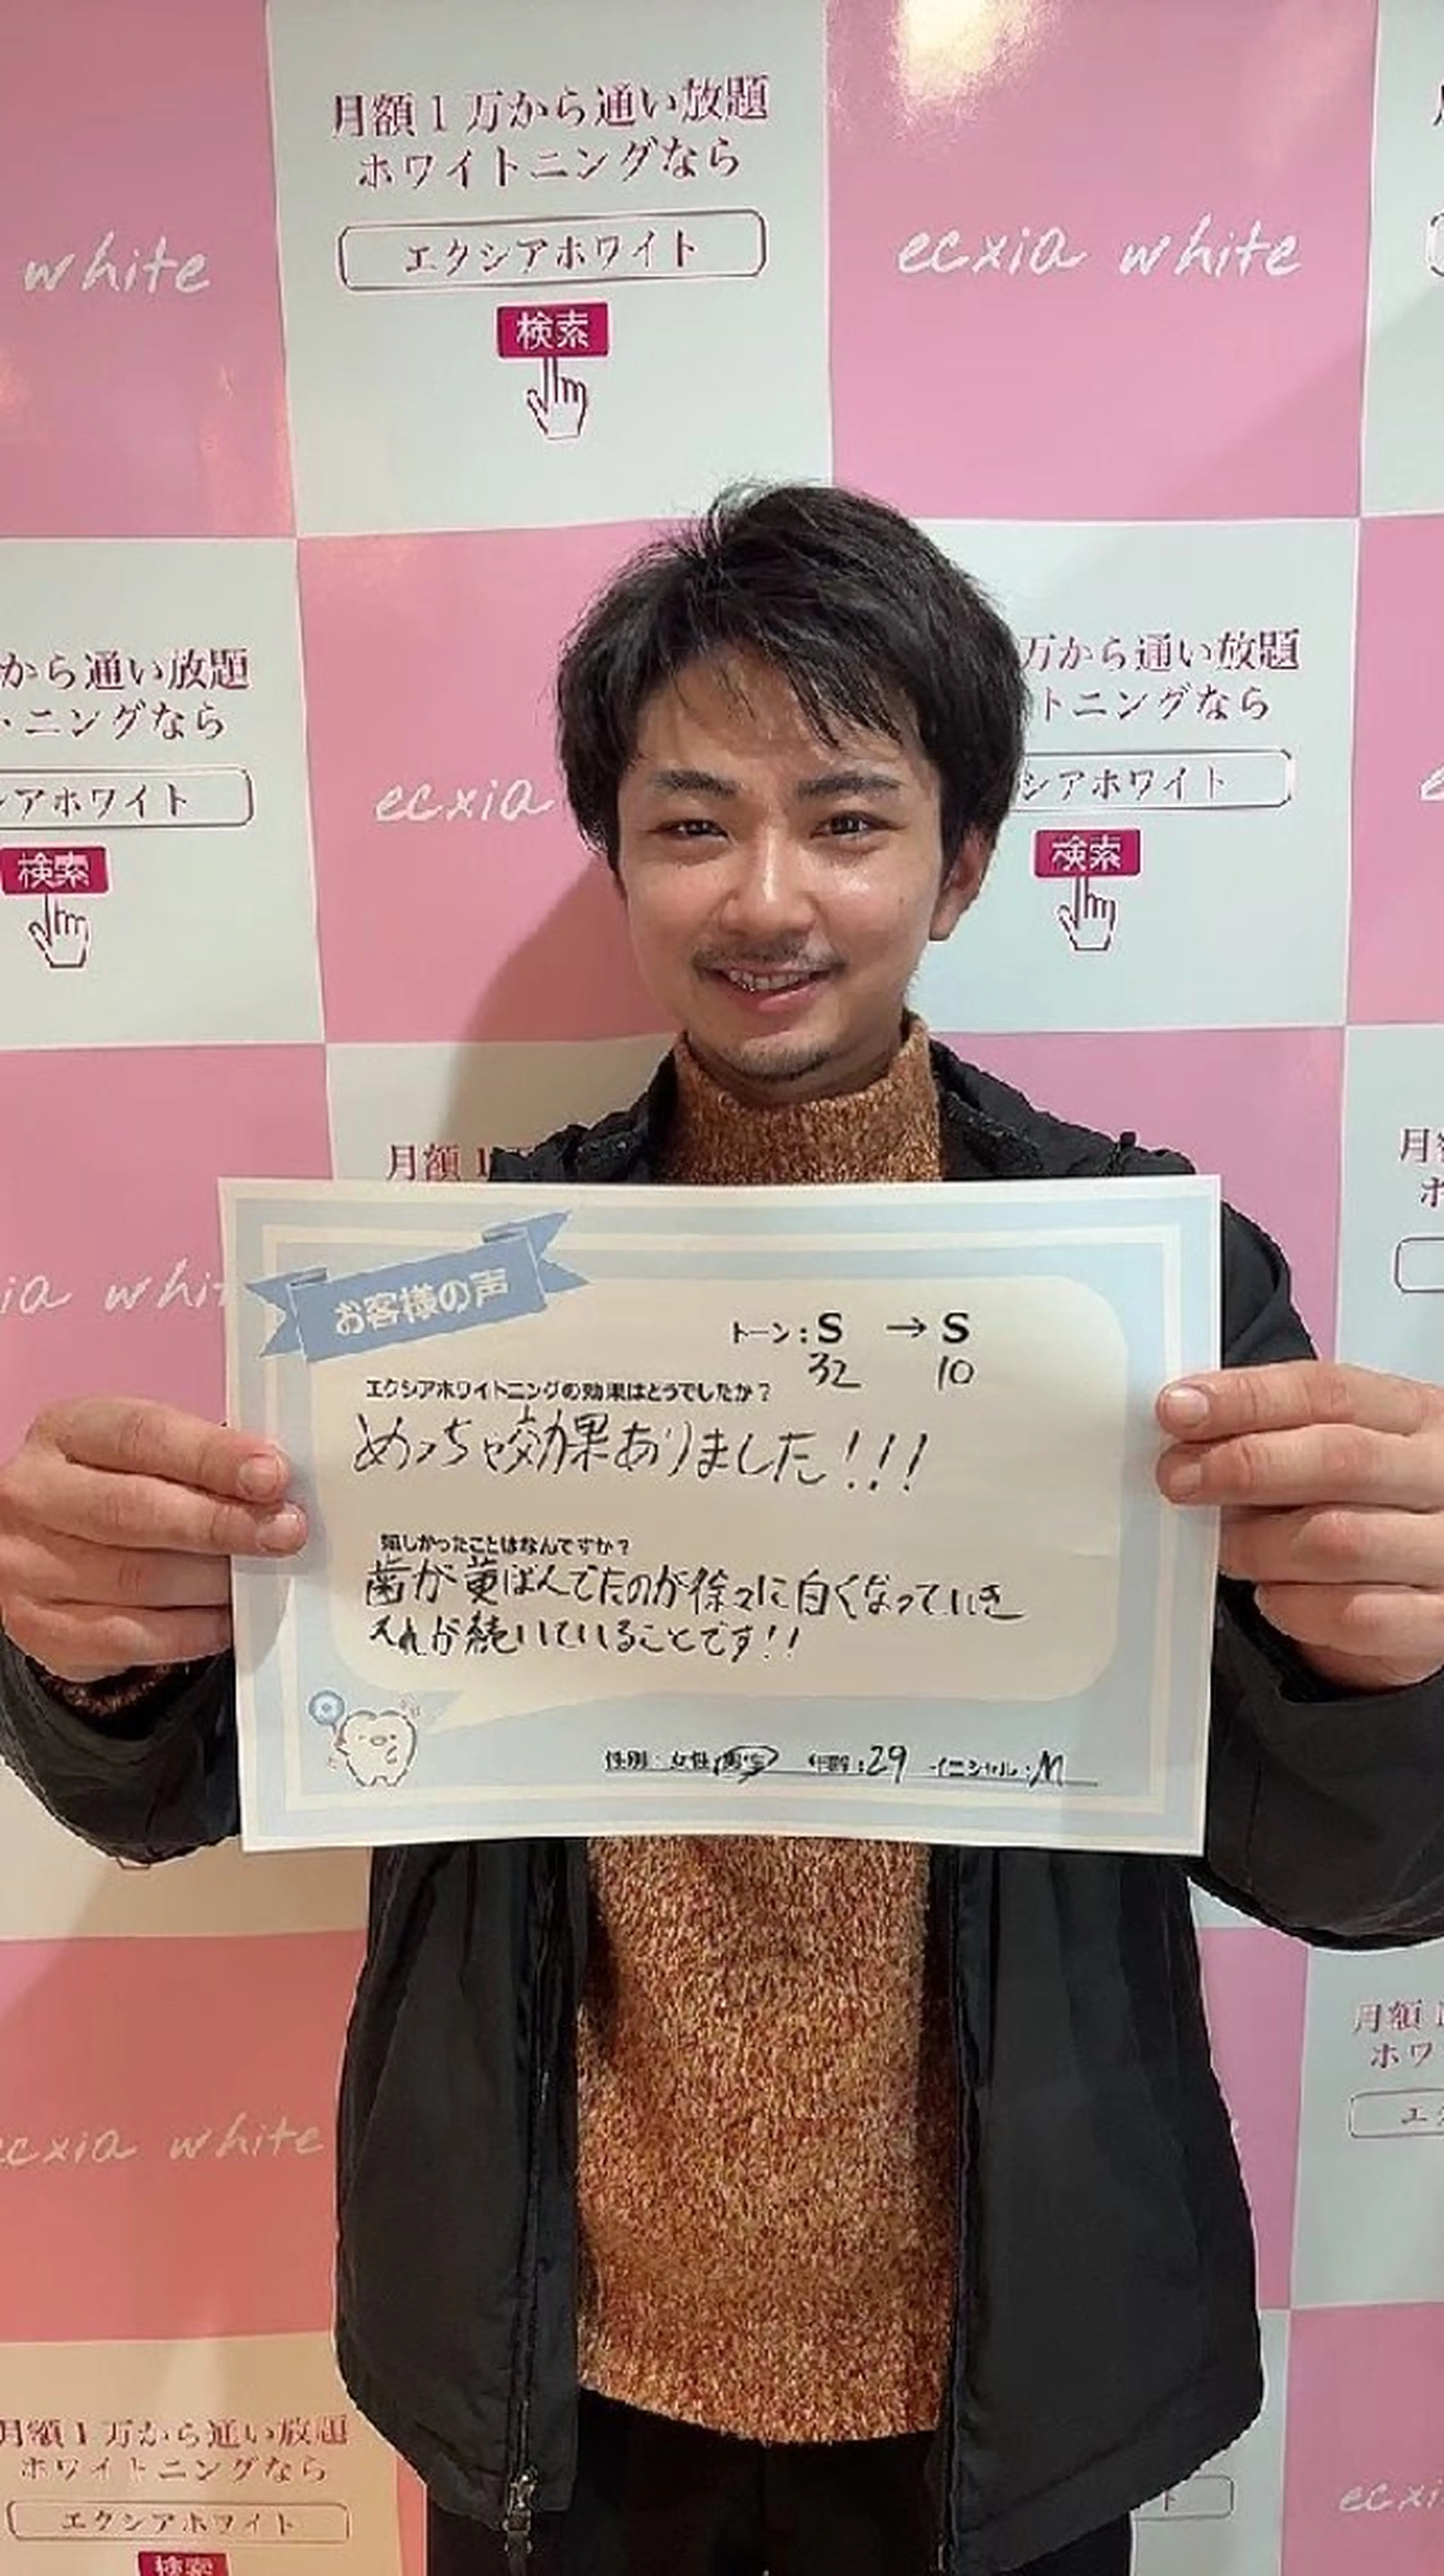 月額1万から通い放題
ホワイトニングなら
エクシアホワイト
検索
white
ecxia white
から通い放題
トニングなら
シアホワイト
検索
ecxia
万から通い放題
トニングなら
シアホワイト
検索
月額1
ia whi
お客様の声
トーン:S → S
32 10
エクシアホワイトニングの効果はどうでしたか?
めっちゃ効果ありました!!!
嬉しかったことはなんですか?
歯が黄ばんでたのが徐々に白くなっていき
それが続いていることです!!
性別:女性 男性 年齢:29 イニシャル:M
月額
ホワ
エク
ecxia white
月額1万から通い放題
ホワイトニングなら
エクシアホワイト
検索
ecxi